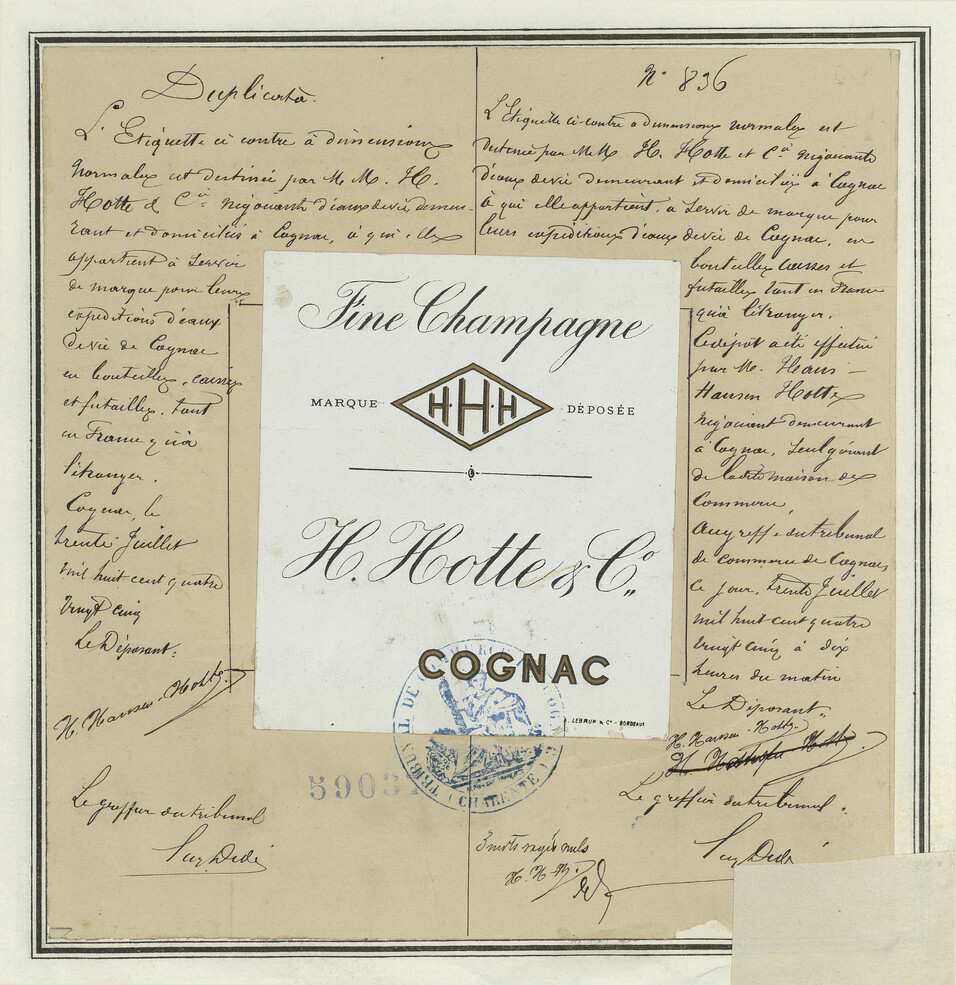 Duplicata.
L'Etiquette ci contre à dimensions
normales est destinée par M.M. H.
Hotte & Cie négociants d'eaux de vie demeu-
rant et domiciliés à Cognac, à qui elle
appartient à servir
de marque pour leurs
expéditions d'eaux
de vie de Cognac
en bouteilles, caisses
et futailles, tant
en France qu'à
l'étranger.
Cognac, le
trente Juillet
mil huit cent quatre
vingt cinq
Le Déposant:
H. Hansen-Hotte
Le greffier du tribunal
N° 836
L'Etiquette ci-contre a dimensions normales est
destinée par M.M. H. Hotte et Cie négociants
d'eaux de vie demeurant et domiciliés à Cognac
à qui elle appartient, a servir de marque pour
leurs expéditions d'eaux de vie de Cognac, en
bouteilles caisses et
futailles tant en France
qu'à l'étranger.
Ce dépôt a été effectué
par M. Hans-
Hansen Hotte
négociant demeurant
à Cognac, seul gérant
de la dite maison de
Commerce,
Au greffe du tribunal
de commerce de Cognac
ce jour, trente Juillet
mil huit cent quatre
vingt cinq à dix
heures du matin
Le Déposant
H. Hansen-Hotte
Le greffier du tribunal.
3 mots rayés nuls
H. H. H.
Fine Champagne
MARQUE H·H·H DÉPOSÉE
H. Hotte & Co
COGNAC
LEBRUN & Cie - BORDEAUX
TRIBUNAL DE COMMERCE DE COGNAC
(CHARENTE)
5903